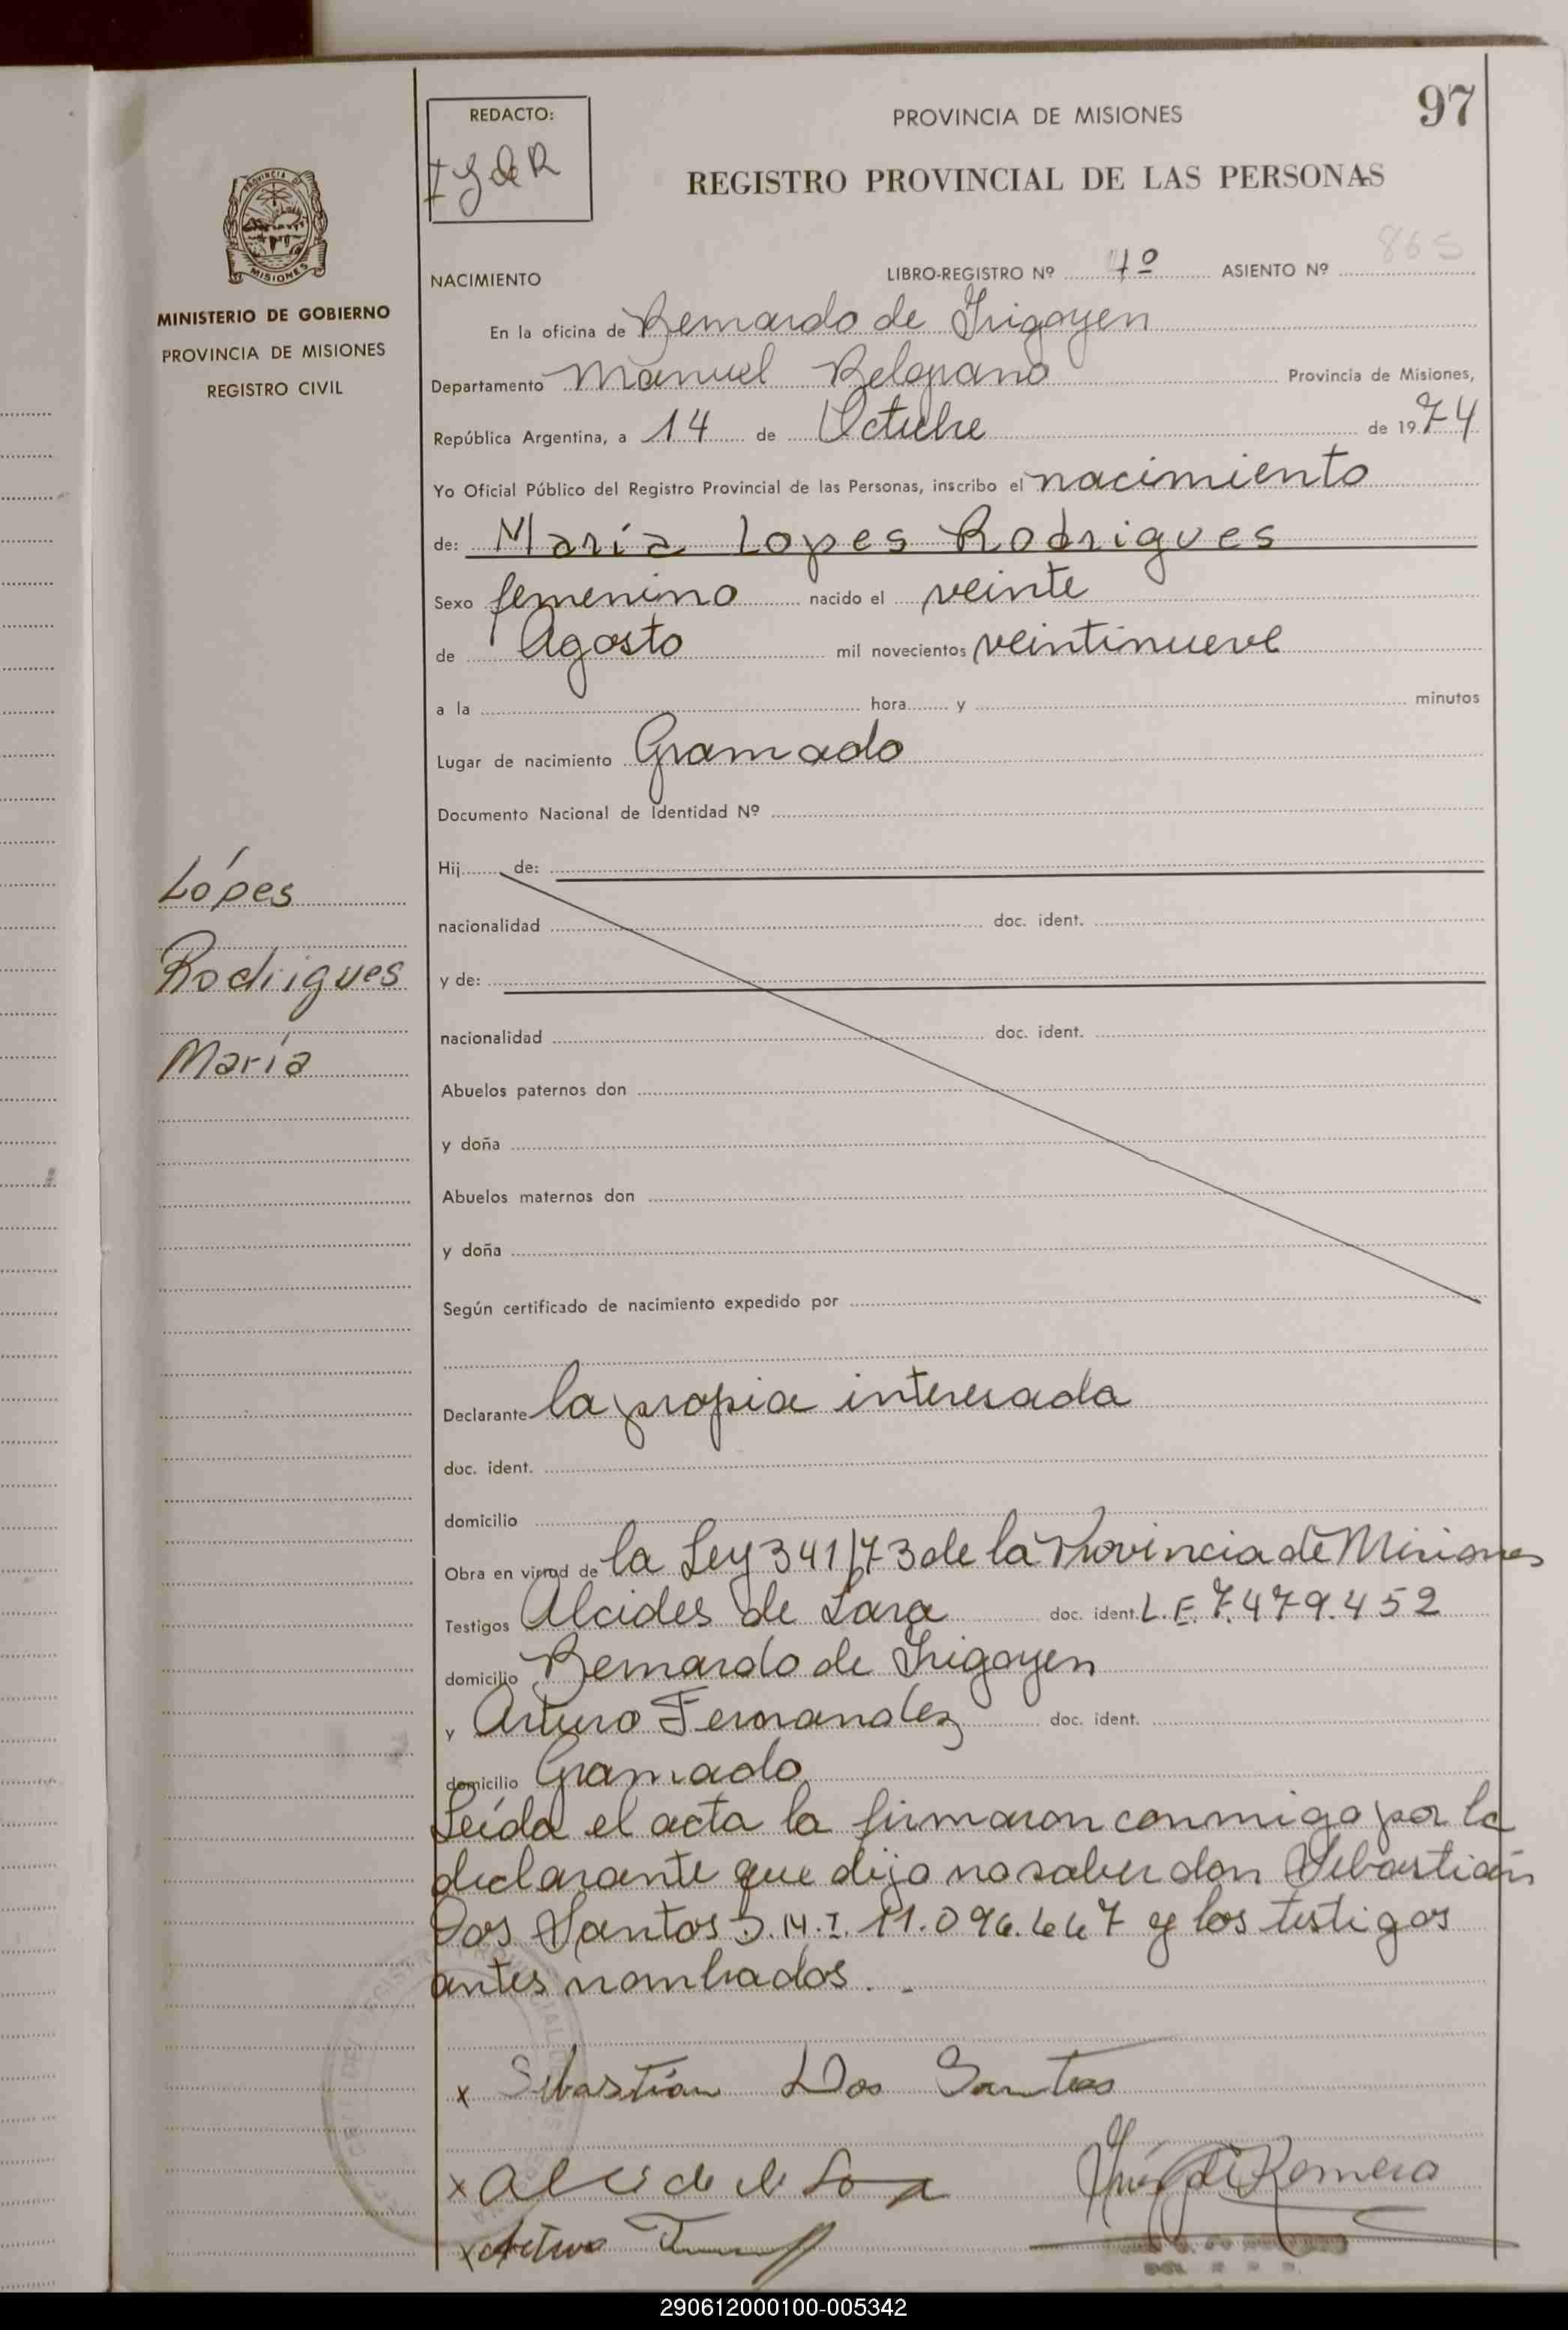 REDACTO:
I G de R
PROVINCIA DE MISIONES
97
REGISTRO PROVINCIAL DE LAS PERSONAS
PROVINCIA DE
MISIONES
MINISTERIO DE GOBIERNO
PROVINCIA DE MISIONES
REGISTRO CIVIL
NACIMIENTO LIBRO-REGISTRO Nº ASIENTO Nº 865
En la oficina de Bernardo de Irigoyen
Departamento Manuel Belgrano Provincia de Misiones,
República Argentina, a 14 de Octubre de 1974
Yo Oficial Público del Registro Provincial de las Personas, inscribo el nacimiento
de: María Lopes Rodrigues
Sexo femenino nacido el veinte
de Agosto mil novecientos veintinueve
a la hora y minutos
Lugar de nacimiento Gramado
Documento Nacional de Identidad Nº
Hij de:
nacionalidad doc. ident.
y de:
nacionalidad doc. ident.
Abuelos paternos don
y doña
Abuelos maternos don
y doña
Según certificado de nacimiento expedido por
Lópes
Rodrigues
María
Declarante la propia interesada
doc. ident.
domicilio
Obra en virtud de la Ley 341/73 de la Provincia de Misiones
Testigos Alcides de Lara doc. ident. L.E. 7.479.452
domicilio Bernardo de Irigoyen
y Arturo Fernandez doc. ident.
domicilio Gramado
Leída el acta la firmaron conmigo por la
declarante que dijo no saber don Sebastián
Dos Santos D.N.I. 11.096.667 y los testigos
antes nombrados.-
x Sebastían Dos Santos
x Alcide de Lara
de Romero
x Arturo
290612000100-005342